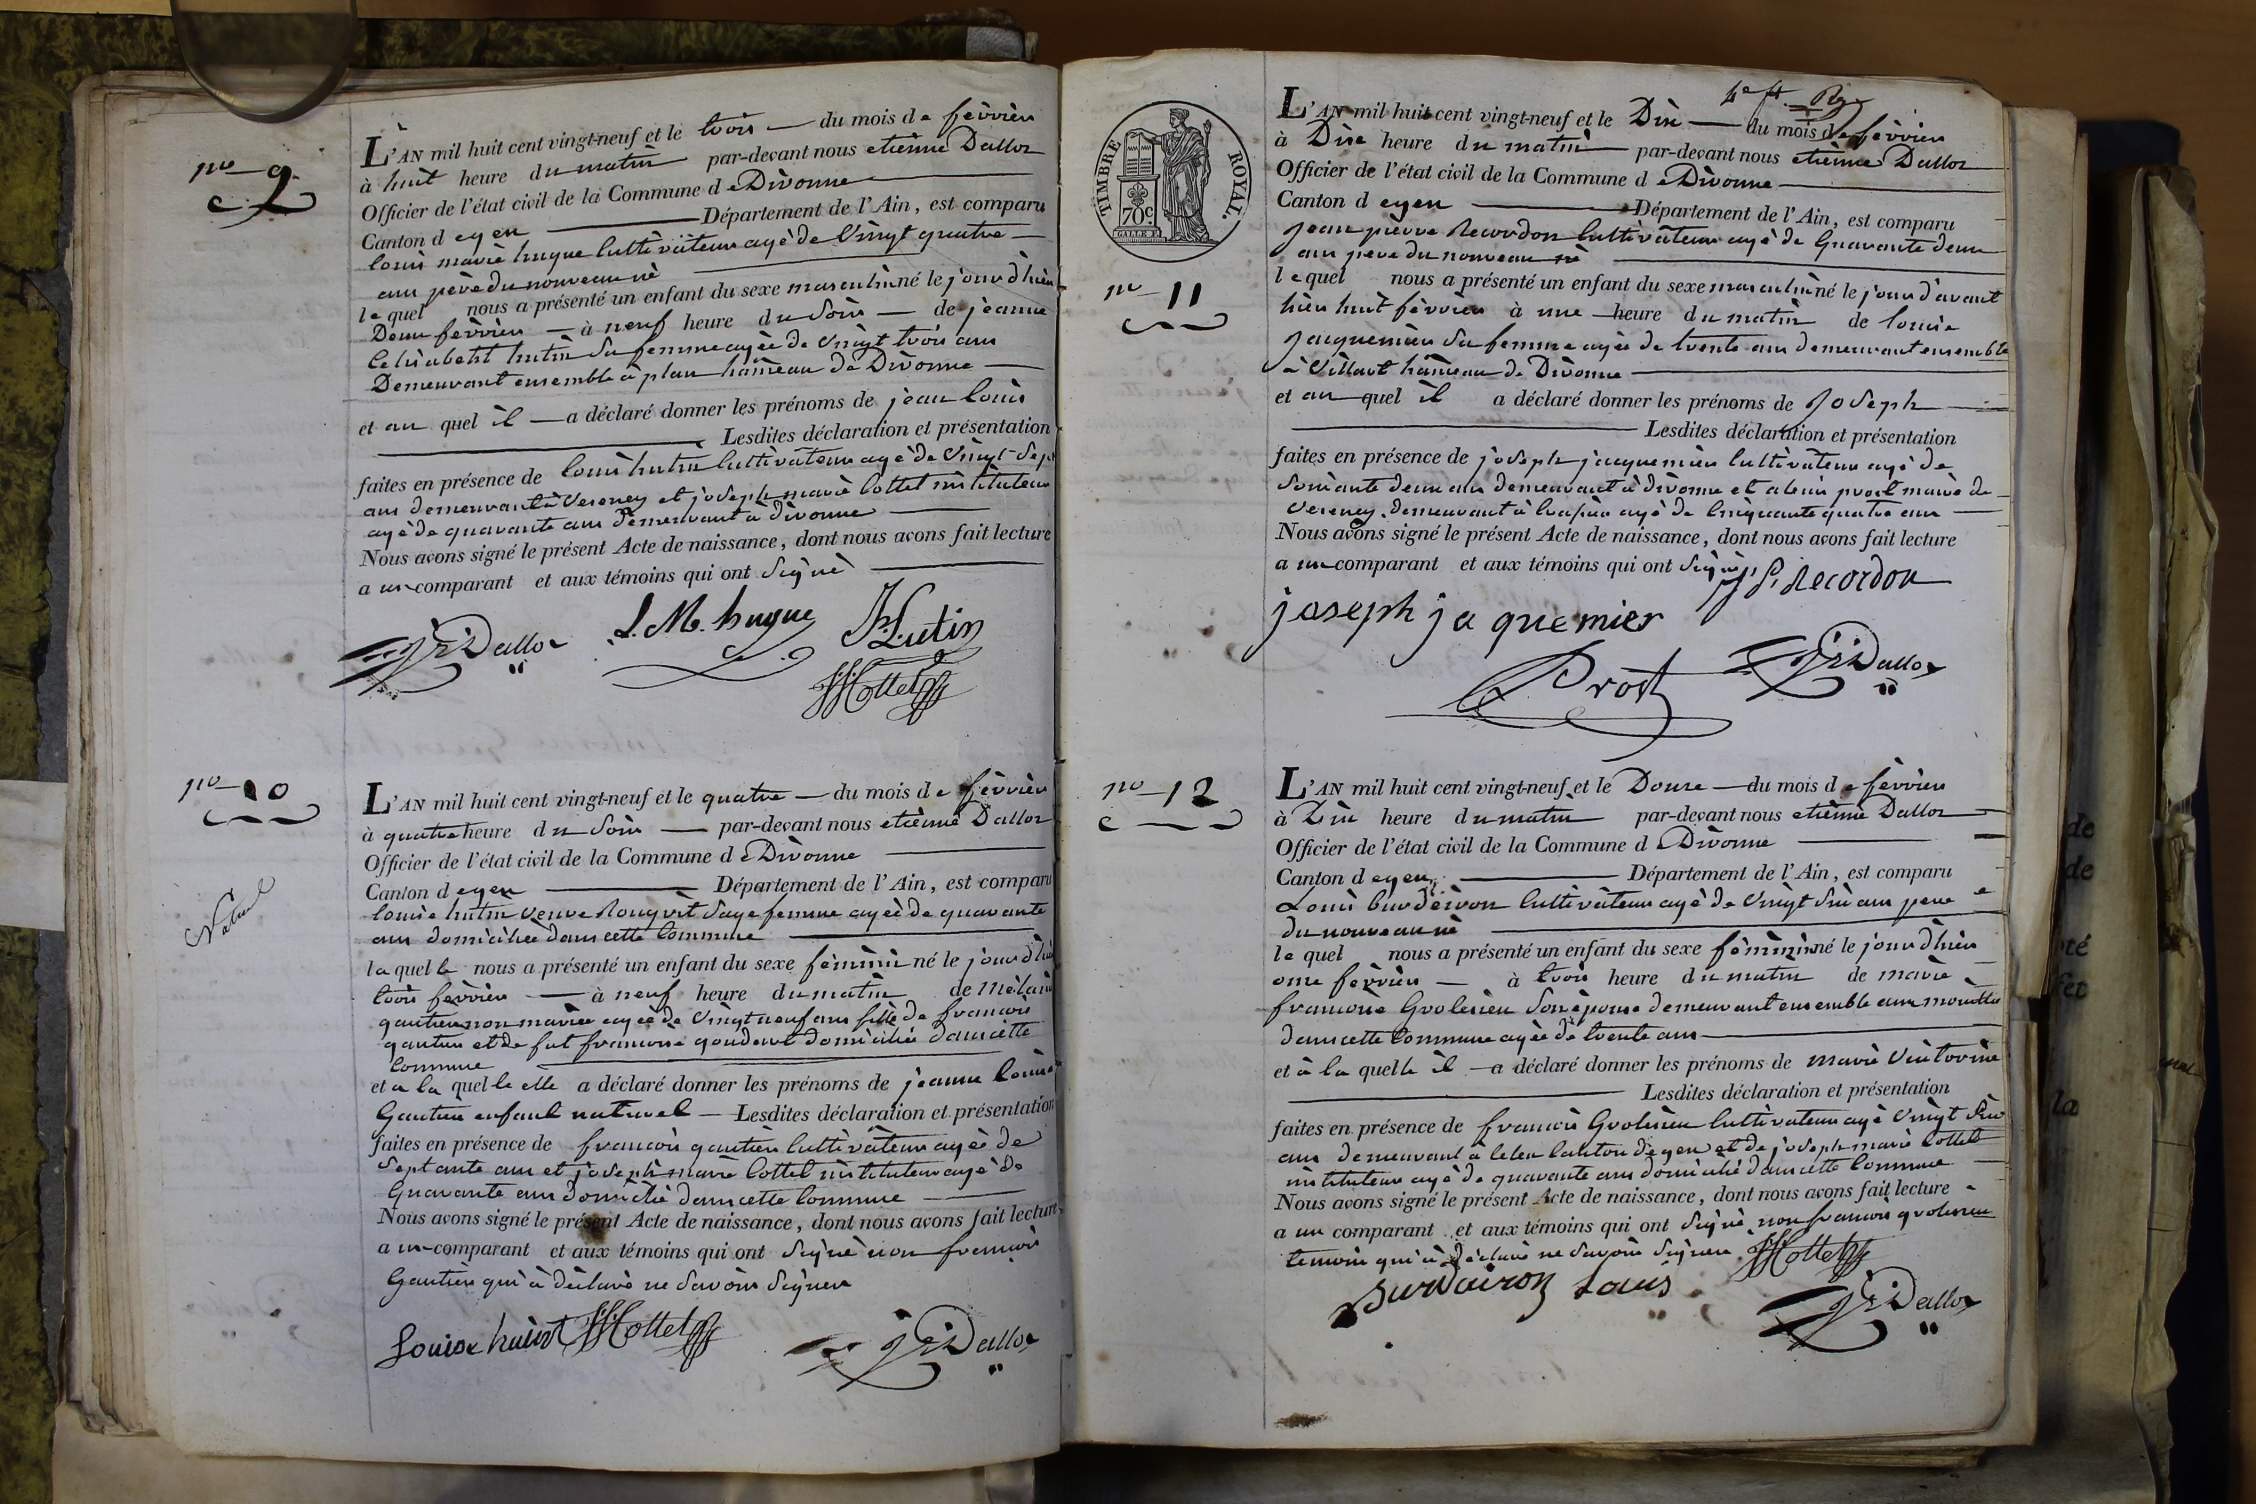 no 9
L'AN mil huit cent vingt-neuf et le trois du mois de fèvrièr
à huit heure du matin par-devant nous etiènne Dallox
Officier de l'état civil de la Commune de Divonne
Canton de gex Département de l'Ain, est comparu
louis mariè hugue Cultivâteur agè de Vingt quatre
ans père du nouveau nè
lequel nous a présenté un enfant du sexe masculin né le jour d'hièr
Deux fèvrièr à neuf heure du Soir de jeanne
hutin Sa femme agèe de Vingt trois ans
Demeurant ensemble à plan hâmeau de Divonne
et au quel il a déclaré donner les prénoms de jean louis
Lesdites déclaration et présentation
faites en présence de louis hutin Cultivâteur agè de Vingt-Sept
ans demeurant à Vesenex et joseph mariè Cottet instituteur
agè de quarante ans demeurant à divonne
Nous avons signé le présent Acte de naissance, dont nous avons fait lecture
a un comparant et aux témoins qui ont Signè
Dallox L. M. hugue Lutin
Cottet
no 10
Naturel
L'AN mil huit cent vingt-neuf et le quatre du mois de fèvrièr
à quatre heure du Soir par-devant nous etiènne Dallox
Officier de l'état civil de la Commune de Divonne
Canton de gex Département de l'Ain, est comparu
louise hutin Veuve Sage femme agèe de quarante
ans domiciliee dans cette Commune
laquelle nous a présenté un enfant du sexe fèminin né le jour d'hièr
trois fèvrièr à neuf heure du matin de Mèlanie
gautier non mariée agèe de Vingt neuf ans fille de francois
gautier et de fut francoise goudard domiciliée dans cette
Commune
et a la quelle elle a déclaré donner les prénoms de jeanne louise
Gautier enfant naturel Lesdites déclaration et présentation
faites en présence de francois gautièr Cultivâteur agèe de
Septante ans et joseph marie Cottet instituteur agè de
Quarante ans domicilié dans cette Commune
Nous avons signé le présent Acte de naissance, dont nous avons fait lecture
a un comparant et aux témoins qui ont Signè non francois
Gautièr qui à dèclarè ne Savoir Signer
Louise Cottet Dallox
TIMBRE ROYAL.
70c.
4e
no 11
L'AN mil huit cent vingt-neuf et le Dix du mois de fèvrièr
à Dix heure du matin par-devant nous etiènne Dallox
Officier de l'état civil de la Commune de Divonne
Canton de gex Département de l'Ain, est comparu
jean pierre Recordon Cultivâteur agè de Quarante deux
ans pere du nouveau nè
lequel nous a présenté un enfant du sexe masculin né le jour d'avant
hièr huit fèvrièr à une heure du matin de louise
jaquemièr Sa femme agèe de trente ans demeurant ensemble
à Villard hâmeau de Divonne
et au quel il a déclaré donner les prénoms de joseph
Lesdites déclaration et présentation
faites en présence de joseph jaquemièr Cultivâteur agè de
Soixante deux ans demeurant à divonne et alexis prost maire de
Vesenex, demeurant à Crassier agè de Cinquante quatre ans
Nous avons signé le présent Acte de naissance, dont nous avons fait lecture
a un comparant et aux témoins qui ont Signè J. P. Recordon
joseph jaquemier
Prost Dallox
no 12
L'AN mil huit cent vingt-neuf et le Douze du mois de fèvrièr
à Dix heure du matin par-devant nous etiènne Dallox
Officier de l'état civil de la Commune de Divonne
Canton de gex Département de l'Ain, est comparu
Louis burdèiron Cultivâteur agè de Vingt Six ans pere
du nouveau nè
lequel nous a présenté un enfant du sexe fèminin né le jour d'hièr
onze fèvrièr à trois heure du matin de mariè
francoise Groslesier Son èpouse demeurant ensemble aux mouilles
dans cette Commune agèe de trente ans
et à la quelle il a déclaré donner les prénoms de mariè Victorine
Lesdites déclaration et présentation
faites en présence de francois Cultivâteur agè Vingt Six
ans demeurant à Canton de gex et de joseph mariè Cottet
instituteur agè de quarante ans domicilié dans cette Commune
Nous avons signé le présent Acte de naissance, dont nous avons fait lecture
a un comparant et aux témoins qui ont Signè non francois
temoin qui à dèclarè ne Savoir Signer Cottet
Burdairon Louis Dallox